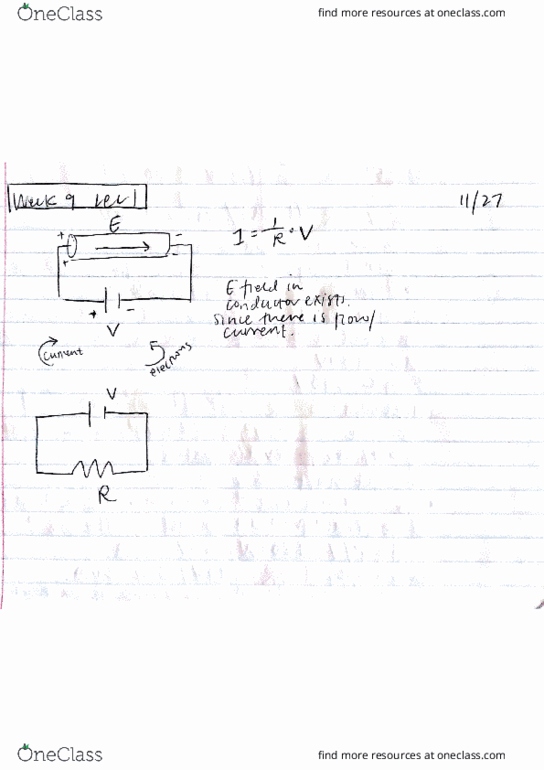 OneClass
find more resources at oneclass.com
Week 9 Lec 1
11/27
E
+ -
+ -
I = 1/R · V
+ -
V
E field in
conductor exists
since there is flow/
current.
current
electrons
V
R
OneClass
find more resources at oneclass.com